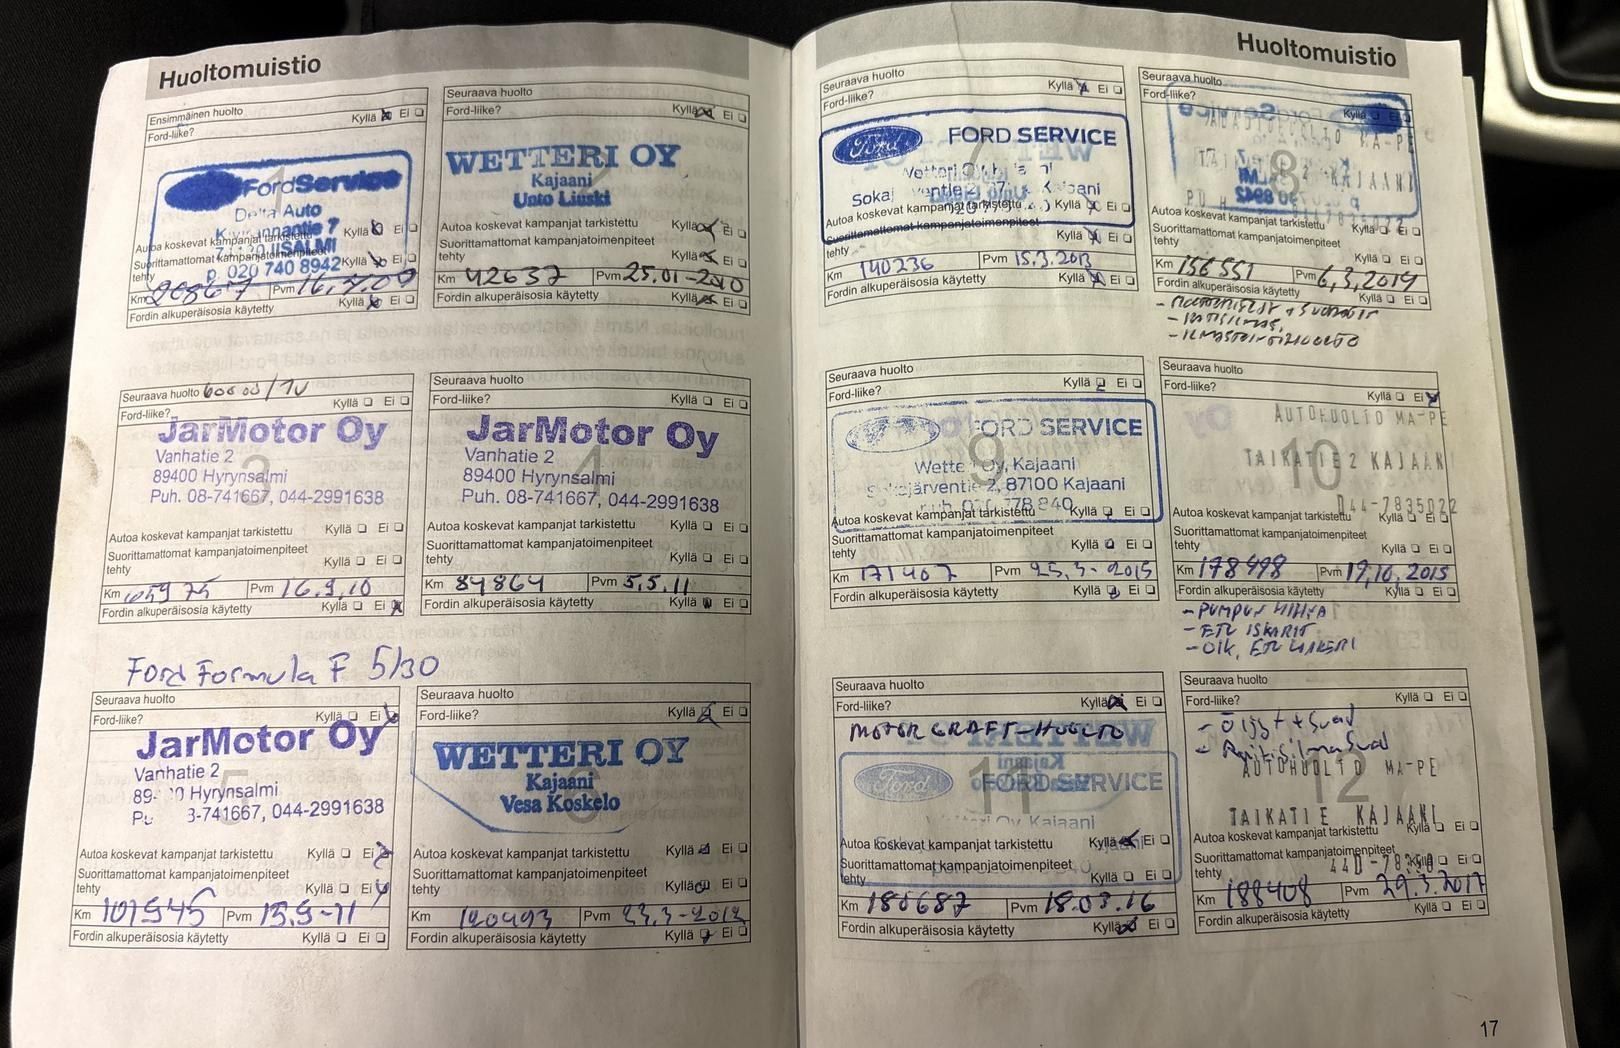 Huoltomuistio
Ensimmäinen huolto
Ford-liike? Kyllä Ei
1
FordService
Delta Auto
7
IISALMI
p. 020 740 8942
Autoa koskevat kampanjat tarkistettu Kyllä Ei
Suorittamattomat kampanjatoimenpiteet
tehty Kyllä Ei
Km Pvm
Fordin alkuperäisosia käytetty Kyllä Ei
Seuraava huolto
Ford-liike? Kyllä Ei
2
WETTERI OY
Kajaani
Unto Liuski
Autoa koskevat kampanjat tarkistettu Kyllä Ei
Suorittamattomat kampanjatoimenpiteet
tehty Kyllä Ei
Km 42637 Pvm 25.01-2010
Fordin alkuperäisosia käytetty Kyllä Ei
Seuraava huolto
Ford-liike? Kyllä Ei
3
JarMotor Oy
Vanhatie 2
89400 Hyrynsalmi
Puh. 08-741667, 044-2991638
Autoa koskevat kampanjat tarkistettu Kyllä Ei
Suorittamattomat kampanjatoimenpiteet
tehty Kyllä Ei
Km Pvm 16.9.10
Fordin alkuperäisosia käytetty Kyllä Ei
Seuraava huolto
Ford-liike? Kyllä Ei
4
JarMotor Oy
Vanhatie 2
89400 Hyrynsalmi
Puh. 08-741667, 044-2991638
Autoa koskevat kampanjat tarkistettu Kyllä Ei
Suorittamattomat kampanjatoimenpiteet
tehty Kyllä Ei
Km 84864 Pvm 5.5.11
Fordin alkuperäisosia käytetty Kyllä Ei
Ford Formula F 5/30
Seuraava huolto
Ford-liike? Kyllä Ei
5
JarMotor Oy
Vanhatie 2
Hyrynsalmi
741667, 044-2991638
Autoa koskevat kampanjat tarkistettu Kyllä Ei
Suorittamattomat kampanjatoimenpiteet
tehty Kyllä Ei
Km 101945 Pvm 15.9-11
Fordin alkuperäisosia käytetty Kyllä Ei
Seuraava huolto
Ford-liike? Kyllä Ei
6
WETTERI OY
Kajaani
Vesa Koskelo
Autoa koskevat kampanjat tarkistettu Kyllä Ei
Suorittamattomat kampanjatoimenpiteet
tehty Kyllä Ei
Km 120493 Pvm 23.3-2012
Fordin alkuperäisosia käytetty Kyllä Ei
Huoltomuistio
Seuraava huolto
Ford-liike? Kyllä Ei
7
Ford FORD SERVICE
Wetteri
Autoa koskevat kampanjat tarkistettu Kyllä Ei
Suorittamattomat kampanjatoimenpiteet
tehty Kyllä Ei
Km 140236 Pvm 15.3.2013
Fordin alkuperäisosia käytetty Kyllä Ei
Seuraava huolto
Ford-liike? Kyllä Ei
8
MA-PE
KAJAANI
Autoa koskevat kampanjat tarkistettu Kyllä Ei
Suorittamattomat kampanjatoimenpiteet
tehty Kyllä Ei
Km 156551 Pvm 6.3.2014
Fordin alkuperäisosia käytetty Kyllä Ei
Seuraava huolto
Ford-liike? Kyllä Ei
9
FORD SERVICE
Oy, Kajaani
2, 87100 Kajaani
Autoa koskevat kampanjat tarkistettu Kyllä Ei
Suorittamattomat kampanjatoimenpiteet
tehty Kyllä Ei
Km 171407 Pvm 25.3-2015
Fordin alkuperäisosia käytetty Kyllä Ei
Seuraava huolto
Ford-liike? Kyllä Ei
10
AUTOHUOLTO MA-PE
TAIKATIE 2 KAJAANI
044-7835022
Autoa koskevat kampanjat tarkistettu Kyllä Ei
Suorittamattomat kampanjatoimenpiteet
tehty Kyllä Ei
Km 178498 Pvm 19.10.2015
Fordin alkuperäisosia käytetty Kyllä Ei
- PUMPUN HIHNA
- ETU ISKARIT
- OIK. ETU
Seuraava huolto
Ford-liike? Kyllä Ei
MOTORCRAFT-HUOLTO
11
Ford FORD SERVICE
Wetteri Oy Kajaani
Autoa koskevat kampanjat tarkistettu Kyllä Ei
Suorittamattomat kampanjatoimenpiteet
tehty Kyllä Ei
Km 180687 Pvm 18.03.16
Fordin alkuperäisosia käytetty Kyllä Ei
Seuraava huolto
Ford-liike? Kyllä Ei
12
AUTOHUOLTO MA-PE
TAIKATIE KAJAANI
Autoa koskevat kampanjat tarkistettu Kyllä Ei
Suorittamattomat kampanjatoimenpiteet
tehty Kyllä Ei
Km 188408 Pvm 29.3.2017
Fordin alkuperäisosia käytetty Kyllä Ei
17